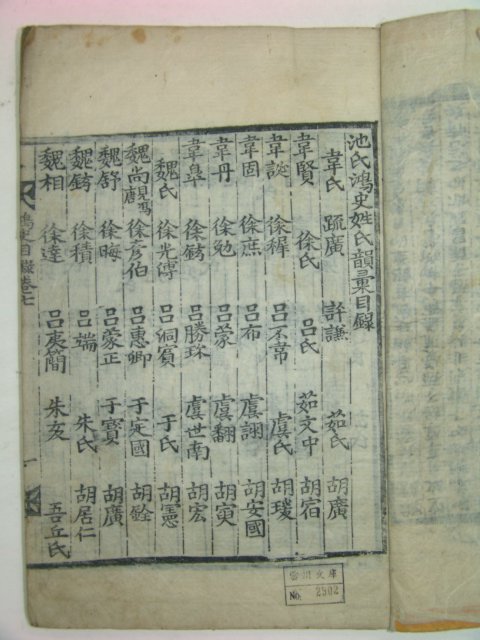 池氏鴻史姓氏韻彙目錄
韋氏 疏廣 許謙 茹氏 胡廣
韋賢 徐氏 呂氏 茹文中 胡宿
韋誕 徐穉 呂不韋 虞氏 胡瑗
韋固 徐庶 呂布 虞詡 胡安國
韋丹 徐勉 呂蒙 虞翻 胡寅
韋皐 徐 呂勝珠 虞世南 胡宏
魏氏 徐光溥 呂洞賓 于氏 胡憲
魏尚見馮唐 徐彦伯 呂惠卿 于定國 胡銓
魏舒 徐晦 呂蒙正 于寶 胡廣
魏 徐積 呂端 朱氏 胡居仁
魏相 徐達 呂夷簡 朱亥 吾丘氏
鴻史目錄卷七 一
文庫
No. 2502